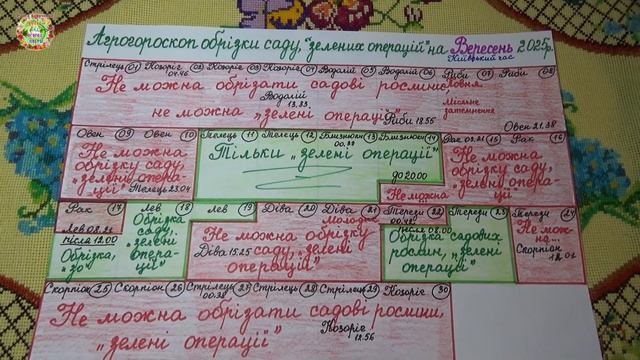 Агрогороскоп обрізки саду, "зелених операцій" на Вересень 2025р.
Київський час
Стрілець 01 Козоріг 02 Козоріг 03 Козоріг 04 Водолій 05 Водолій 06 Риби 07 Риби 08
04.46
Не можна обрізати садові рослини,
Повня.
Водолій
13.33
Місячне
затемнення
не можна "зелені операції"
Риби 18.56
Овен 21.38
Овен 09 Овен 10 Телець 11 Телець 12 Близнюки 13 Близнюки 14 Рак 15 Рак 16
Не можна
обрізку саду,
"зелені опера-
ції"
Телець 23.04
Тільки "зелені операції"
до 20.00
Не можна
Не можна
обрізку саду,
"зелені опера-
ції
Рак 17 Лев 18 Лев 19 Діва 20 Діва 21 Терези 22 Терези 23 Терези 24
Після 12.00
Обрізка,
"зо"
Обрізка
саду,
"зелені
опера-
ції"
Не можна обрізку
Діва 15.25 саду, "зелені
операцій"
Після 08.00
Обрізка садових
рослин, "зелені
операції"
Не мож-
на...
Скорпіон
Скорпіон 25 Скорпіон 26 Стрілець 27 Стрілець 28 Стрілець 29 Козоріг 30
Не можна обрізати садові рослини,
Козоріг
12.56
"зелені операції"